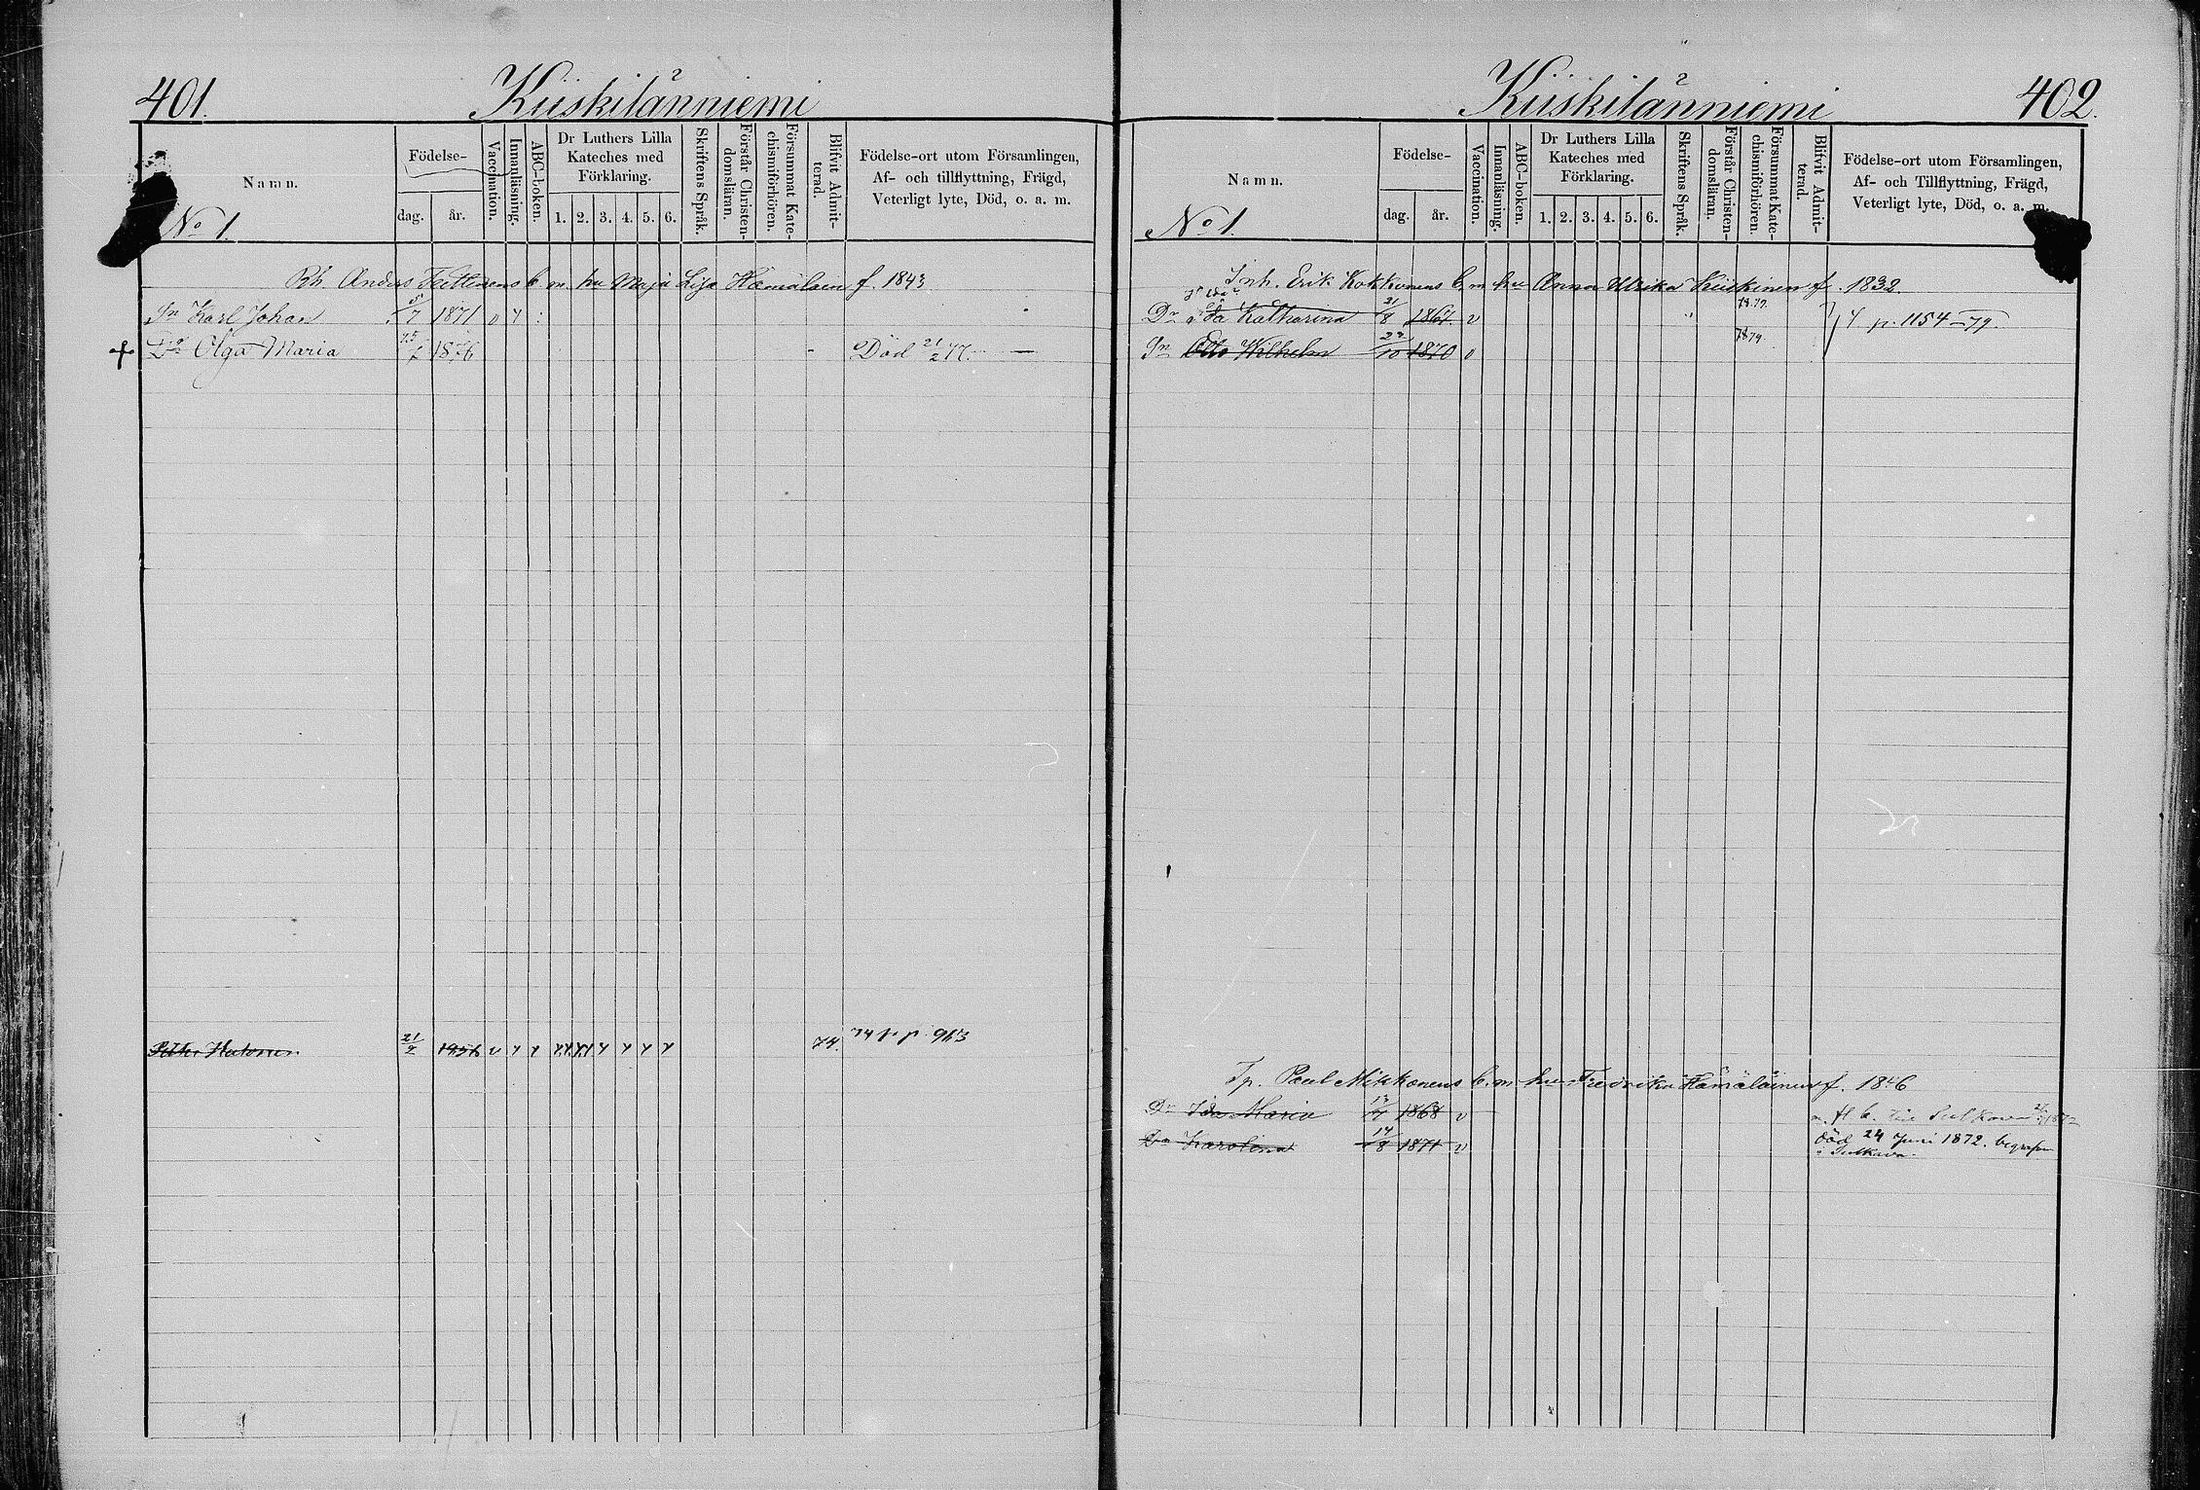 401.
Kiiskilänniemi
Namn.
Födelse-
dag. år.
Vaccination.
Innanläsning.
ABC-boken.
Dr Luthers Lilla
Kateches med
Förklaring.
1. 2. 3. 4. 5. 6.
Skriftens Språk.
Förstår Christen-
domsläran.
Försummat Kate-
chismiförhören.
Blifvit Admit-
terad.
Födelse-ort utom Församlingen,
Af- och tillflyttning, Frägd,
Veterligt lyte, Död, o. a. m.
No 1.
Anders b. m. hu Maja Lisa Hämäläin f. 1843
Sn Karl Johan 5/7 1871 v y
Dr Olga Maria 25/7 1876 Död 21/2 77.
Peter Halonen 21/2 v y y y y y y 74. 74 p. p. 963
402.
Kiiskilänniemi
Namn.
Födelse-
dag. år.
Vaccination.
Innanläsning.
ABC-boken.
Dr Luthers Lilla
Kateches med
Förklaring.
1. 2. 3. 4. 5. 6.
Skriftens Språk.
Förstår Christen-
domsläran.
Försummat Kate-
chismiförhören.
Blifvit Admit-
terad.
Födelse-ort utom Församlingen,
Af- och Tillflyttning, Frägd,
Veterligt lyte, Död, o. a. m.
No 1.
Inh. Erik Kokkonens b. m. hu Anna Ulrika Kiiskinen f. 1832
Dr Ida Katharina 21/8 1867 v 78.79. p. 1154-79.
Sn Otto Wilhelm 22/10 1870 v 7879.
Tp. Paul Mikkonens b. m. hu Fredrika Hämäläinen f. 1846
Dr Ida Maria 1868 v
Dr Karolina 14/8 1871 v död 24 Juni 1872. begrafven
i Sulkava.